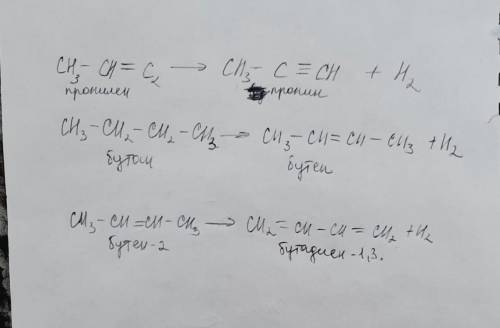 CH₃ – CH = C₂ → CH₃ – C ≡ CH + H₂
пропилен пропин
CH₃ – CH₂ – CH₂ – CH₃ → CH₃ – CH = CH – CH₃ + H₂
бутан бутен
CH₃ – CH = CH – CH₃ → CH₂ = CH – CH = CH₂ + H₂
бутен-2 бутадиен-1,3.